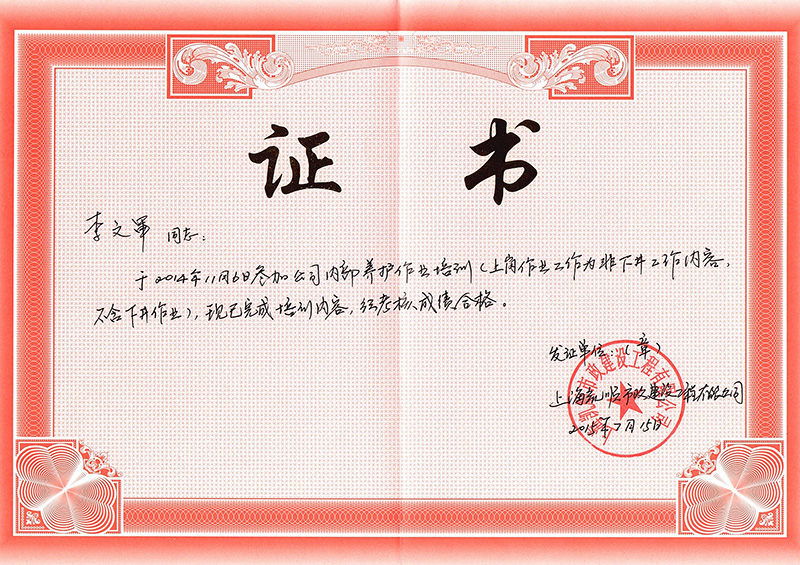 证书
李文军 同志：
于2014年11月6日参加公司内部养护作业培训（上岗作业工作为非下井工作内容，
不含下井作业），现已完成培训内容，经考核，成绩合格。
发证单位：（章）
上海凯顺市政建设工程有限公司
2015年7月15日